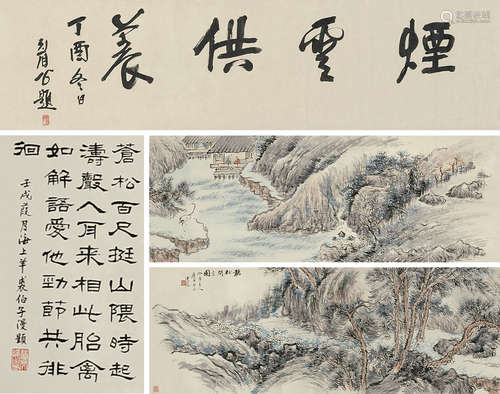 煙雲供養
丁酉冬日
題
蒼松百尺挺山隈時起
濤聲入耳來相此胎禽
如解語愛他勁節共徘
徊
壬戌葭月海上華裳伯子漫題
聽松
圖